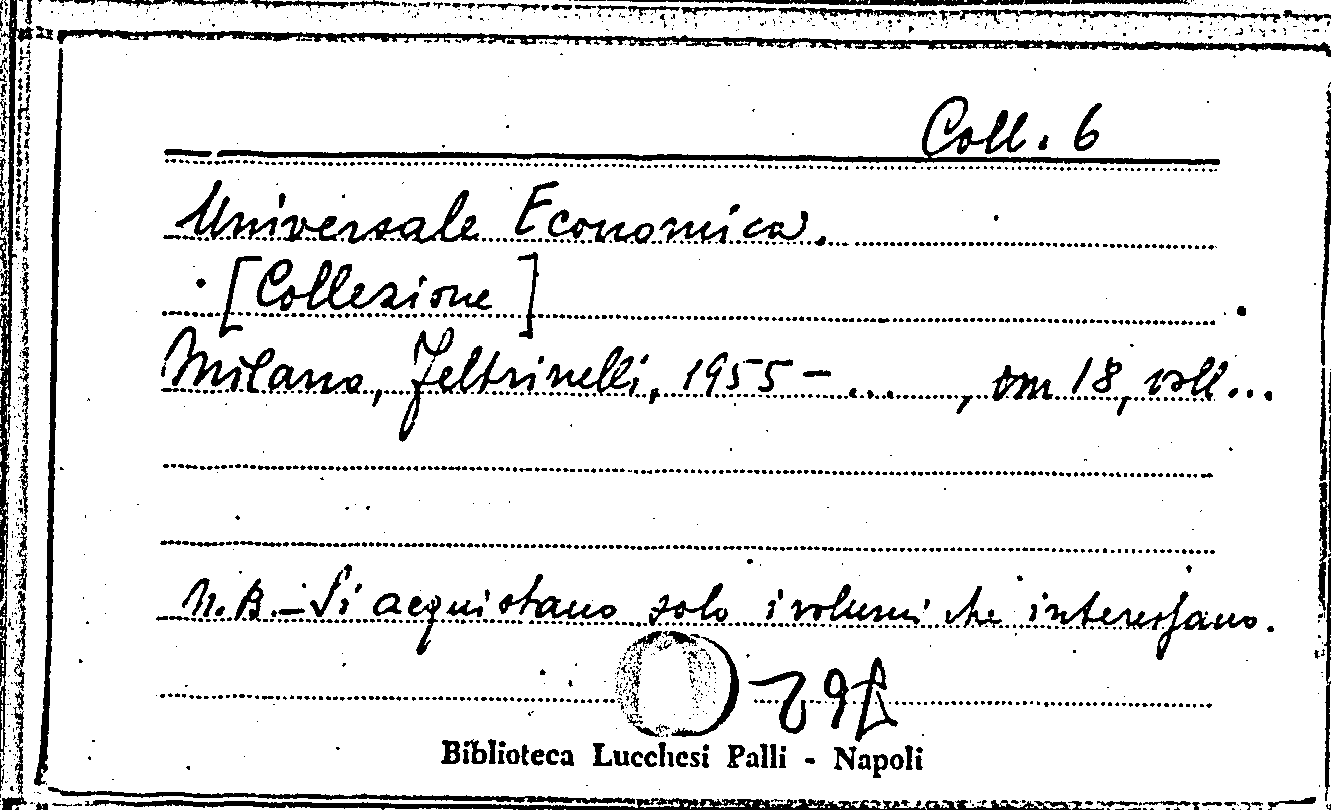 Coll. 6
Universale Economica.
[Collezione]
Milano, Feltrinelli, 1955 - ... , cm 18, voll...
N.B. - Si acquistano solo i volumi che interessano.
Biblioteca Lucchesi Palli - Napoli